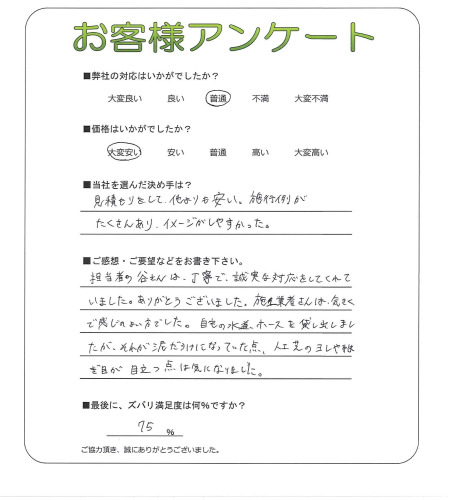 お客様アンケート
■弊社の対応はいかがでしたか?
大変良い 良い 普通 不満 大変不満
■価格はいかがでしたか?
大変安い 安い 普通 高い 大変高い
■当社を選んだ決め手は?
見積もりをして、他よりも安い。施行例が
たくさんあり、イメージがしやすかった。
■ご感想・ご要望などをお書き下さい。
担当者の谷さんは、丁寧で、誠実な対応をしてくれて
いました。ありがとうございました。施工業者さんは、気さく
で感じのよい方でした。自宅の水道ホースを貸し出しまし
たが、それが泥だらけになっていた点、人工芝のヨレや継
ぎ目が目立つ点は気になりました。
■最後に、ズバリ満足度は何%ですか?
75 %
ご協力頂き、誠にありがとうございました。